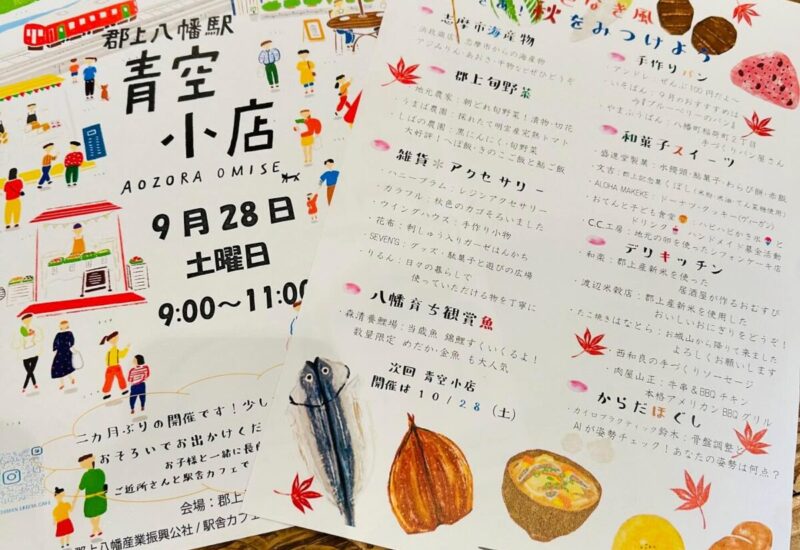 郡上八幡駅
青空
小店
AOZORA OMISE
9月28日
土曜日
9:00〜11:00
二カ月ぶりの開催です！少し
おそろいでお出かけくだ
お子様と一緒に長
ご近所さんと駅舎カフェで
会場：郡上
郡上八幡産業振興公社/駅舎カフェ
秋をみつけよう
志摩市海産物
浜政商店：志摩市からの海産物
アジみりん・あおさ・干物などぜひどうぞ
郡上旬野菜
地元農家：朝どれ旬野菜！漬物・切花
うまば農園：採れたて明宝産完熟トマト
しばの農園：黒にんにく・旬野菜
大好評！へぼ飯・きのこご飯と鮎ご飯
雑貨＊アクセサリー
ハニープラム：レジンアクセサリー
カラフル：秋色のカゴそろいました
ウイングハウス：手作り小物
花布：刺しゅう入りガーゼはんかち
SEVEN'S：グッズ・駄菓子と遊びの広場
りるん：日々の暮らしで
使っていただける物を丁寧に
八幡育ち観賞魚
森清養鯉場：当歳魚 錦鯉すくいくるよ！
数量限定 めだか・金魚 も大人気
次回 青空小店
開催は 10/28（土）
手作りパン
アンドレ：ぜんぶ100円だよ〜
いそぱん：9月のおすすめは
ブルーベリーのパン
やまふうぱん：八幡町稲荷町の
手づくりパン屋さん
和菓子スイーツ
盛進堂製菓：水饅頭・駄菓子・わらび餅・赤飯
ALOHA MAKEKE：ドーナツ・クッキー(ヴィーガン)
おてんと子ども食堂：ハピハピかき氷と
ドリンク ハンドメイド基金活動
C.C.工房：地元の卵を使ったシフォンケーキ店
デリキッチン
和楽：郡上産新米を使った
居酒屋が作るおむすび
渡辺米穀店：郡上産新米を使用した
おいしいおにぎりをどうぞ！
たこ焼きはなとら：お城山から降りて来ました
よろしくお願いします
西和良の手づくりソーセージ
肉屋山正：牛串＆BBQチキン
本格アメリカンBBQグリル
からだほぐし
カイロプラクティック鈴木：骨盤調整と
AIが姿勢チェック！あなたの姿勢は何点？